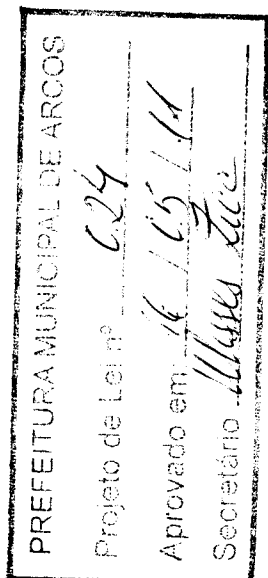 PREFEITURA MUNICIPAL DE ARCOS
Projeto de Lei nº 024
Aprovado em: 16 / 05 / 11
Secretário Ulisses